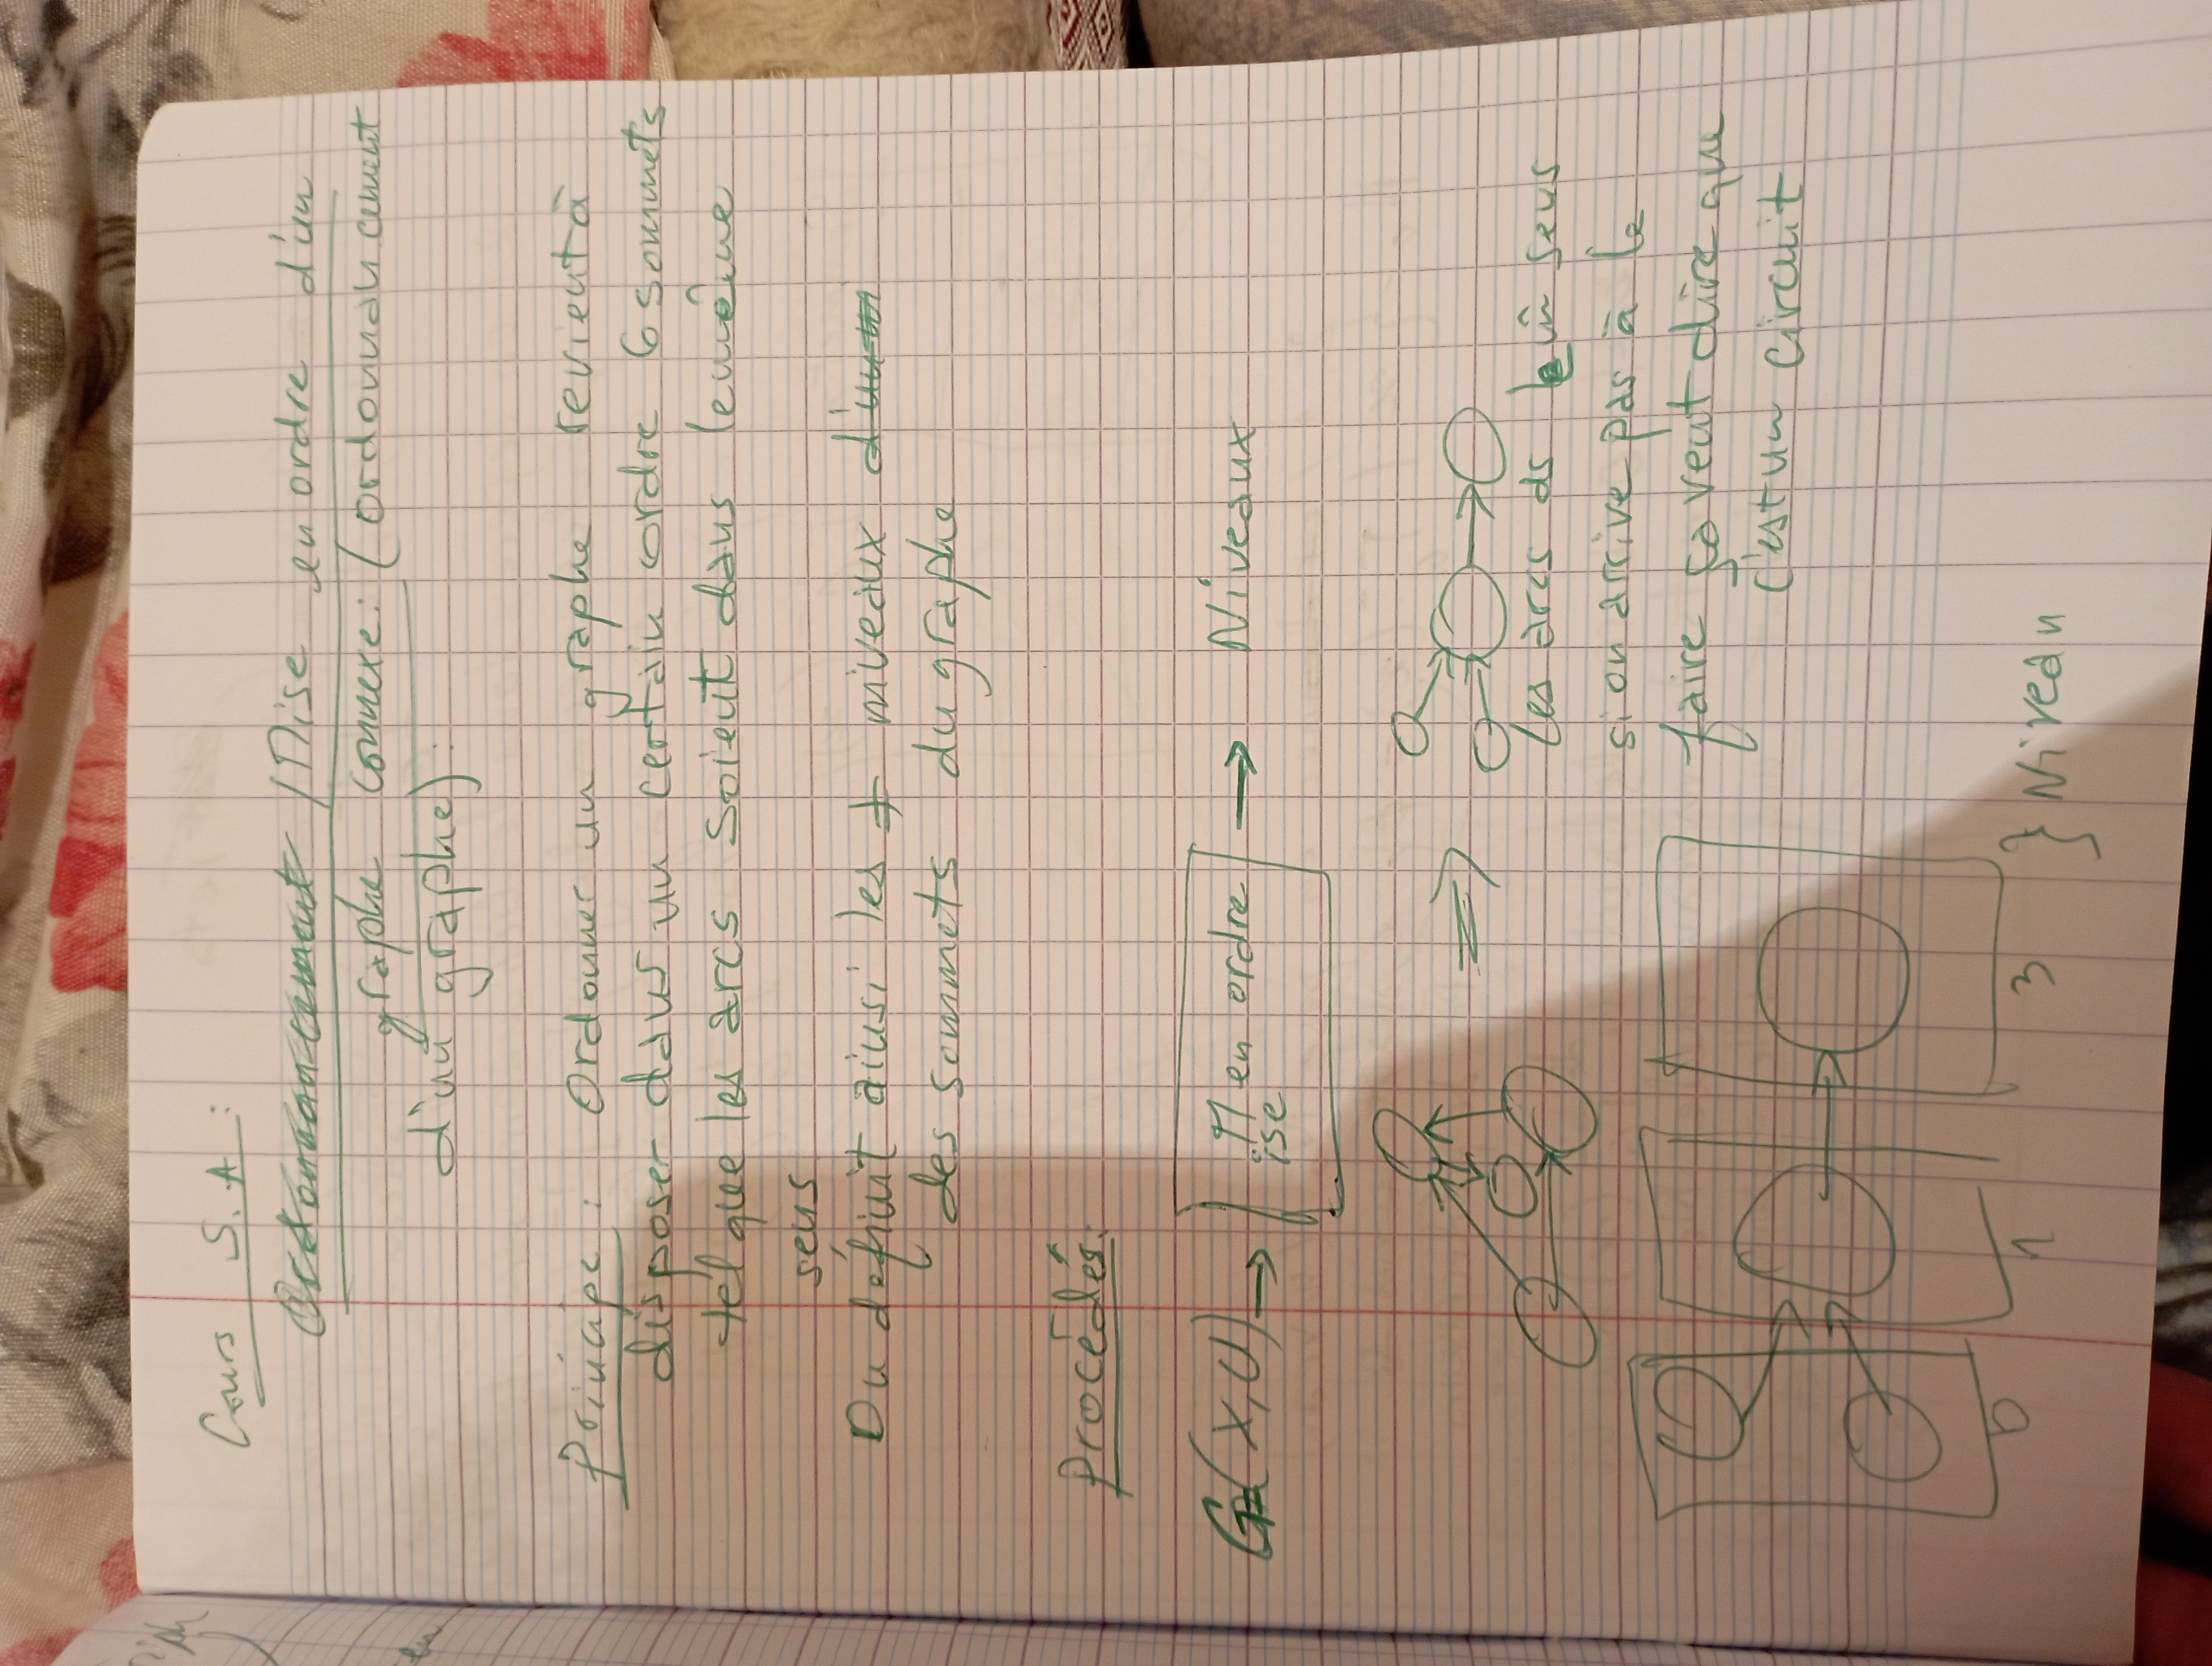 Cours S.A:
Ordonnancement / Mise en ordre d'un
graphe connexe: (ordonnancement
d'un graphe):
Principe: Ordonner un graphe revient à
disposer dans un certain ordre 6 sommets
tel que les arcs soient dans le même
sens
On définit ainsi les ≠ niveaux d'un
des sommets du graphe
Procédés:
G=(X,U) → M en ordre → Niveaux
ise
⇒
les arcs ds le m̂ sens
si on arrive pas à le
faire ça veut dire que
c'est un circuit
0 1 3 } Niveau